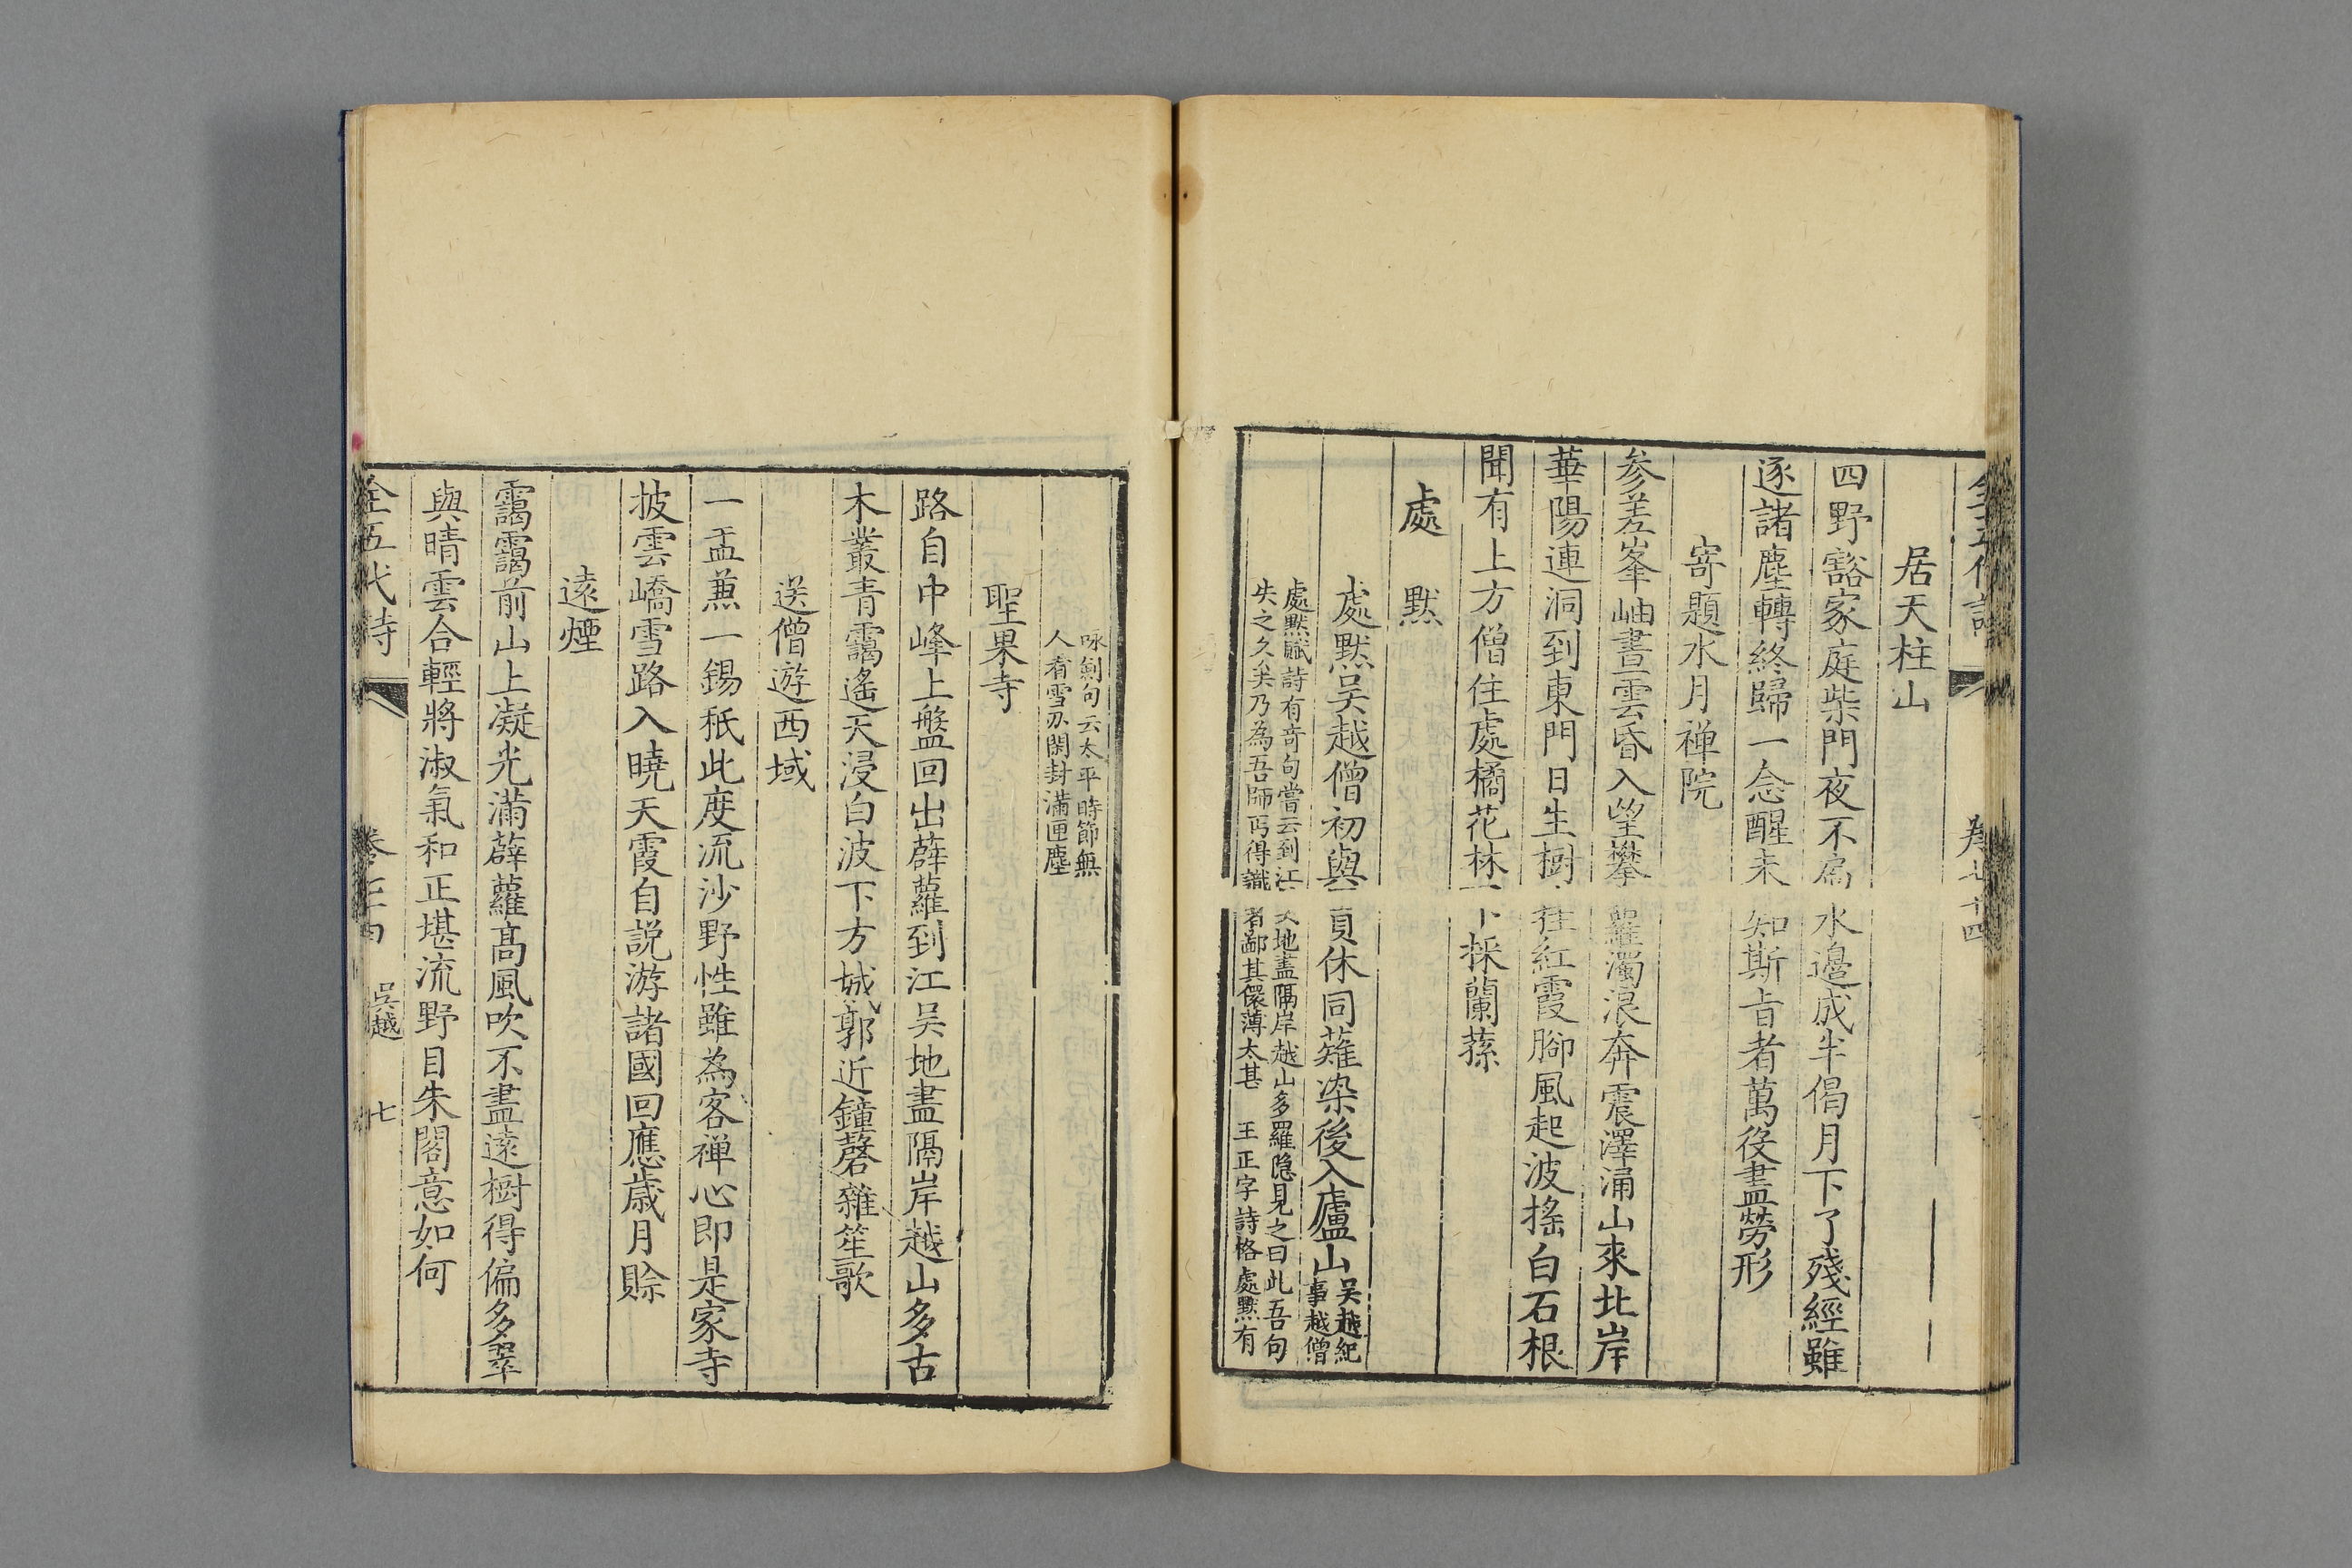 居天柱山
四野豁家庭柴門夜不扃水邊成半偈月下了殘經雖
逐諸塵轉終歸一念醒未知斯旨者萬役盡勞形
寄題水月禅院
參差峯岫晝雲昏入望攀蘿濁浪奔震澤涌山來北岸
華陽連洞到東門日生樹挂紅霞腳風起波搖白石根
聞有上方僧住處橘花林下採蘭蓀
處默
處默吳越僧初與貫休同薙染後入廬山吳越紀
事越僧
處默賦詩有奇句嘗云到江吳地盡隔岸越山多羅隐見之曰此吾句
失之久矣乃為吾師丐得識者鄙其儇薄太甚 王正字詩格處默有
咏劍句云太平時節無
人看雪刃閑封滿匣塵
聖果寺
路自中峰上盤回出薜蘿到江吳地盡隔岸越山多古
木叢青靄遙天浸白波下方城郭近鐘磬雜笙歌
送僧遊西域
一盂兼一錫秖此度流沙野性雖為客禅心即是家寺
披雲嶠雪路入曉天霞自説游諸國回應歲月賒
遠煙
靄靄前山上凝光滿薜蘿高風吹不盡遠樹得偏多翠
與晴雲合輕將淑氣和正堪流野目朱閣意如何
全五代詩 吳越 七